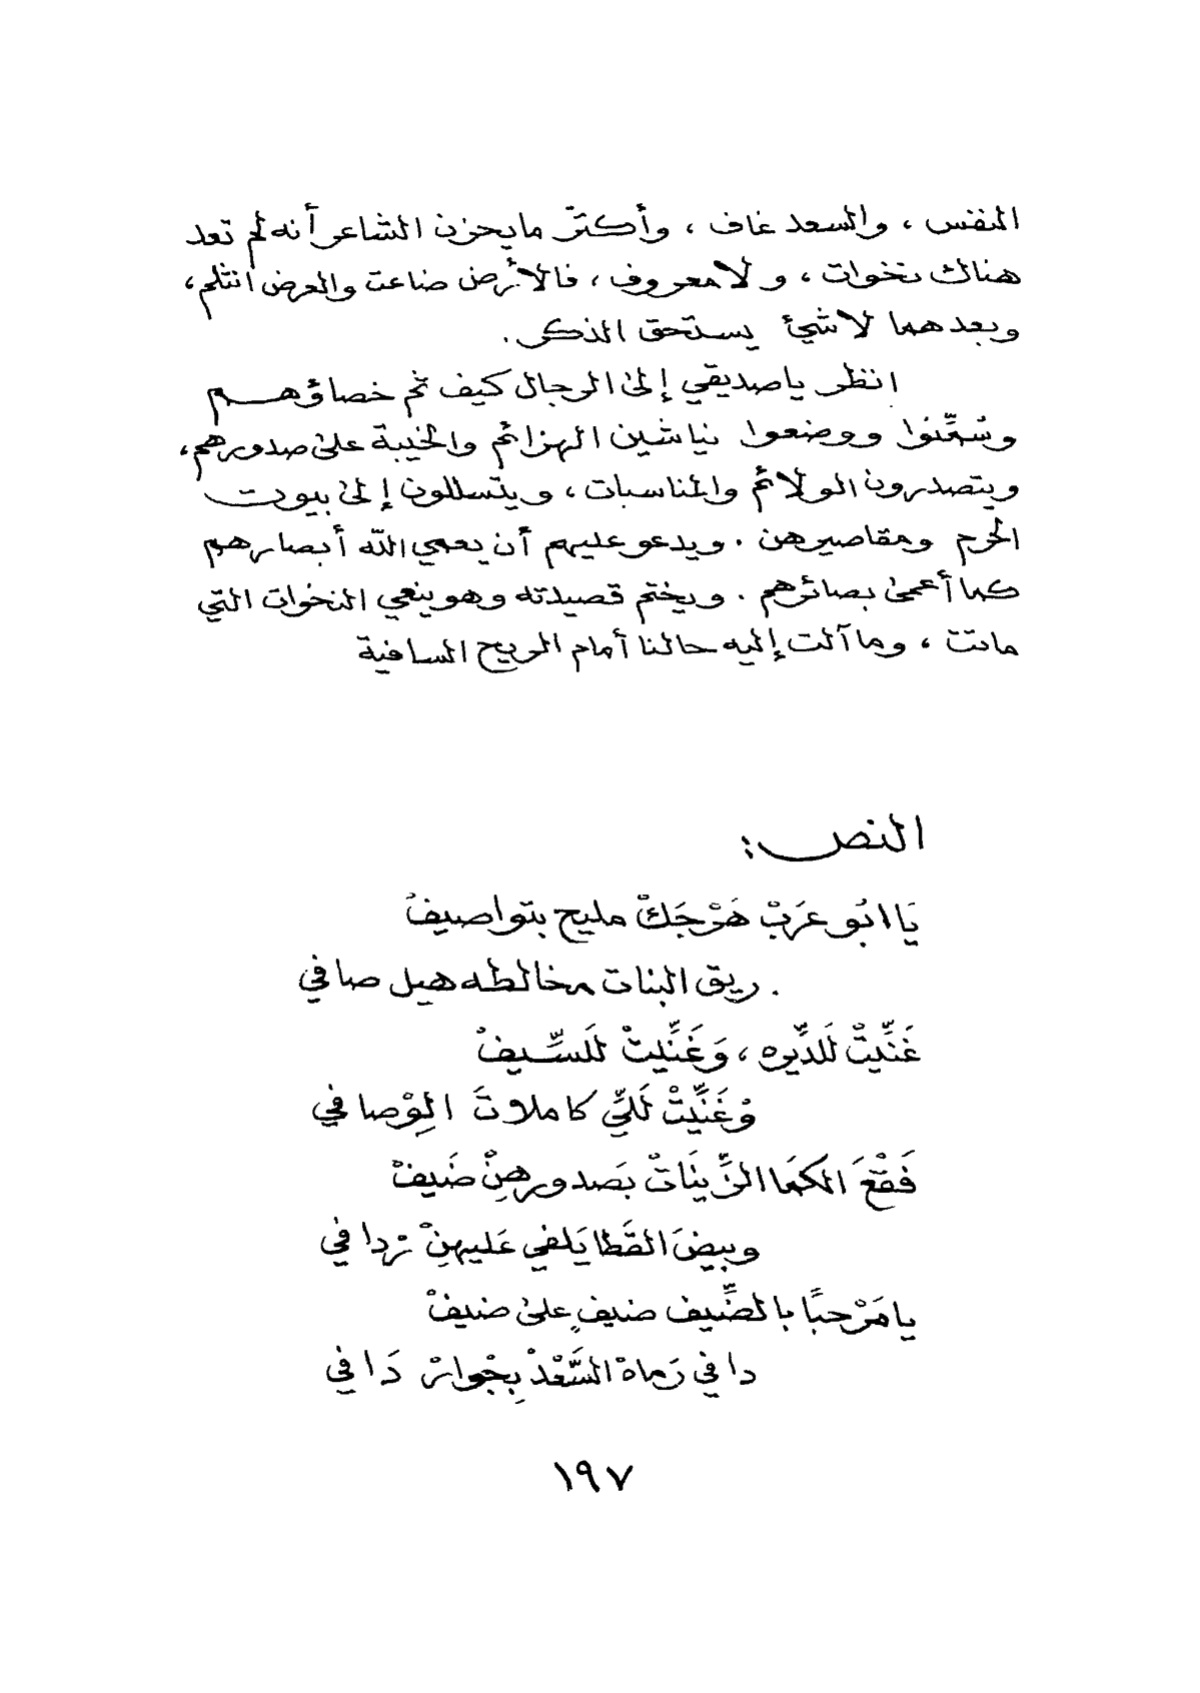 النفس ، والسعد غاف ، وأكثر مايحزن الشاعر أنه لم تعد
هناك نخوات ، ولا معروف ، فالأرض ضاعت والعرض انثلم ،
وبعدهما لا شيئ يستحق الذكر .
انظر ياصديقي إلى الرجال كيف تم خصاؤهم
وسُمِّنوا ووضعوا نياشين الهزائم والخيبة على صدورهم ،
ويتصدرون الولائم والمناسبات ، ويتسللون إلى بيوت
الحرم ومقاصيرهن . ويدعو عليهم أن يعمي الله أبصارهم
كما أعمى بصائرهم . ويختم قصيدته وهو ينعي النخوات التي
ماتت ، وما آلت إليه حالنا أمام الريح السافية
النص :
يَا ابُو عرَبْ هَرْجَكْ مليح بتواصيفْ
ريق البنات مخالطه هيل صافي
غَنِّيتْ لَلدِّيره ، وَغَنِّيتْ لَلسِّيفْ
وْغَنِّيتْ لَلِّي كاملاتَ الِوْصافي
فَقْعَ الكمَا الزِّينَاتْ بَصدورهِنْ ضَيفْ
وبيضَ القَطا يَلفي عَليهِنْ رْدافي
يا مَرْحبًا بالضِّيف ضيفٍ على ضيفْ
دافي رَماهْ السَّعْدْ بِجْوارْ دَافي
١٩٧